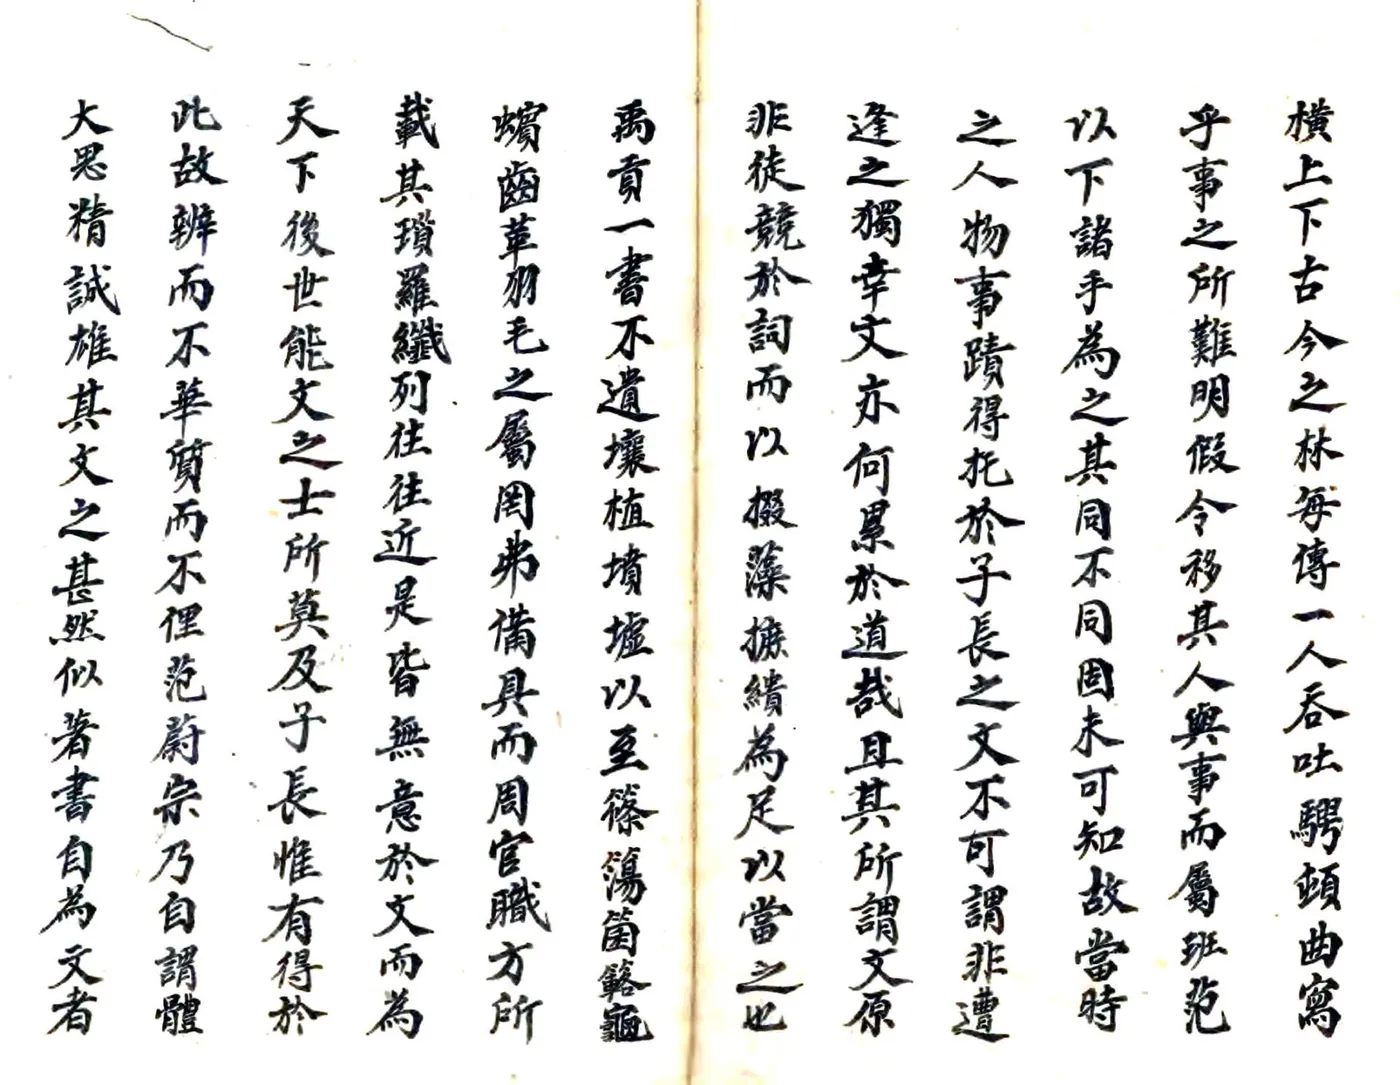 橫上下古今之林每傳一人吞吐騁頓曲寫
乎事之所難明假令移其人與事而屬班范
以下諸手為之其同不同固未可知故當時
之人物事蹟得托於子長之文不可謂非遭
逢之獨幸文亦何累於道哉且其所謂文原
非徒競於詞而以掇藻摭繢為足以當之也
禹貢一書不遺壤植墳壚以至篠簜箘簵龜
蠙齒革羽毛之屬罔弗備具而周官職方所
載其瑣羅纖列往往近是皆無意於文而為
天下後世能文之士所莫及子長惟有得於
此故辨而不華質而不俚范蔚宗乃自謂體
大思精誠雄其文之甚然似著書自為文者